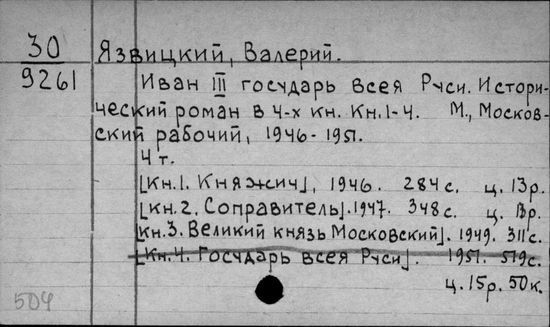 30
9261
Язвицкий, Валерий.
Иван III государь всея Руси. Истори-
ческий роман в 4-х кн. Кн. 1-4. М., Москов-
ский рабочий, 1946-1951.
4 т.
[Кн. 1. Княжич], 1946. 284 с. ц. 13р.
[Кн. 2. Соправитель]. 1947. 348 с. ц. 13р.
[Кн. 3. Великий князь Московский]. 1949. 311 с.
[Кн. 4. Государь всея Руси]. 1951. 519 с.
ц. 15р. 50к.
504